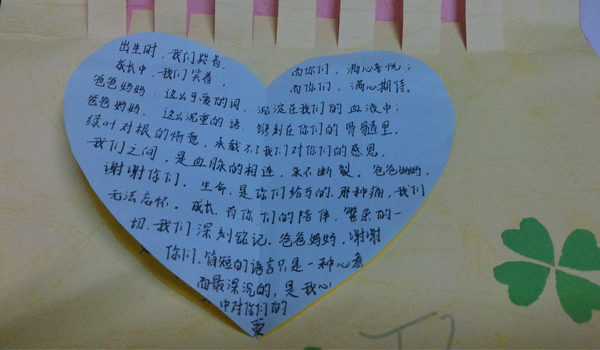 出生时，我们哭着，
而你们，满心喜悦；
成长中，我们笑着，
而你们，满心期待。
爸爸妈妈，这么可爱的词，沉淀在我们的血液中；
爸爸妈妈，这么沉重的语，镌刻在你们的骨髓里。
绿叶对根的情意，承载不了我们对你们的感恩，
我们之间，是血脉的相连，永不断裂。爸爸妈妈，
谢谢你们。生命，是你们给予的，那种痛，我们
无法忘怀。成长，有你们的陪伴，繁杂的一
切，我们深刻铭记。爸爸妈妈，谢谢
你们，简短的语言只是一种心意
而最深沉的，是我心
中对你们的
爱